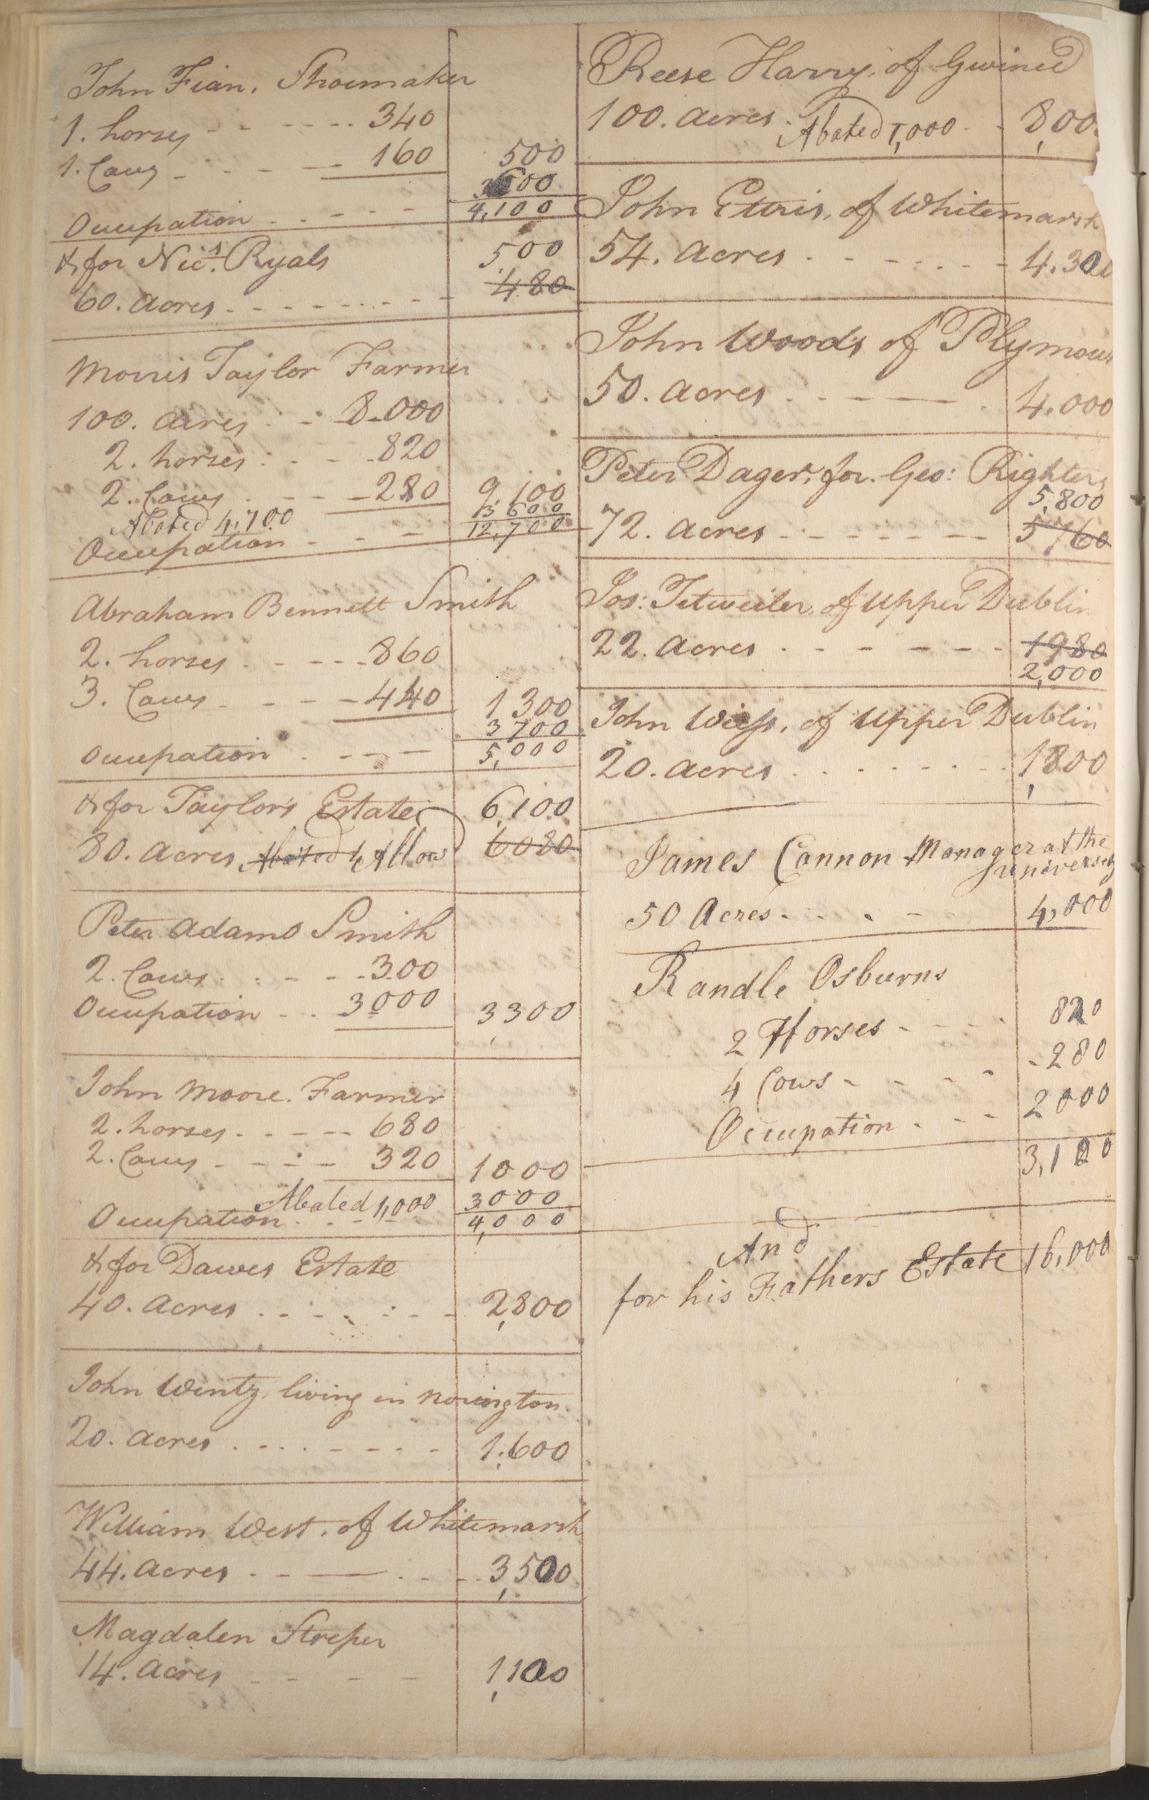 John Fian, Shoemaker
1. horses - - - - - 340
1. Cows - - - - 160 500
3600
Occupation - - - - - 4,100
& for Nic.s Ryals 500
60. acres - - - - - - - 480
Morris Taylor Farmer
100. acres - - 8,000
2. horses - - - 820
2. Cows - - - 280 9,100
Abated 4,700 3600
Occupation - - - 12,700
Abraham Bennett Smith
2. horses - - - - 860
3. Cows - - - 440 1300
3700
Occupation - - - - 5,000
& for Taylors Estate 6,100
80. acres Abated & Allow 6080
Peter Adams Smith
2. Cows - - - - 300
Occupation - - 3000 3300
John Moore. Farmer
2. horses - - - - 680
2. Cows - - - - 320 1000
Abated 1,000 3000
Occupation - - - 4,000
& for Dawes Estate
40. acres - - - - - - - 2,800
John Wentz, living in Norington
20. acres - - - - - - - 1,600
William West, of Whitemarsh
44. acres - - — - - - 3,500
Magdalen Streper
14. acres - - - - 1,100
Reese Harry, of Gwined
100. acres - Abated 1,000 - - 8,000
John Ettris, of Whitemarsh
54. acres - - - - - - - 4.300
John Woods of Plymouth
50. acres - - - — - 4,000
Peter Dager, for. Geo: Righters
5,800
72. acres - - - - - - - 5760
Jos: Tetweiler, of Upper Dublin
22. acres - - - - - - 1980
2,000
John Wiess, of Upper Dublin
20. acres - - - - - - - 1,800
James Cannon Manager at the
University
50 Acres - - - - - 4,000
Randle Osburns
2 Horses - - - - 820
4 Cows - - - - - 280
Occupation - - - 2000
3,100
And
for his Fathers Estate 16,000